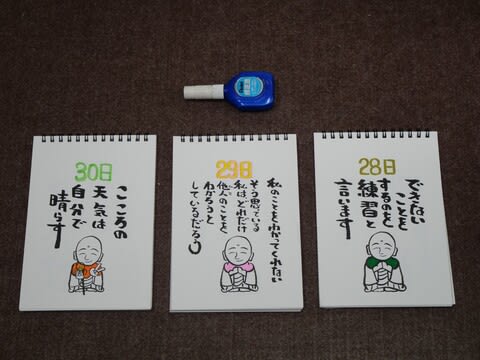 30日
こころの
天気は
自分で
晴らす
29日
私のことをわかってくれない
そう思っている
私はどれだけ
他人のことを
わかろうと
しているだろう
28日
できない
ことを
するのを
練習と
言います